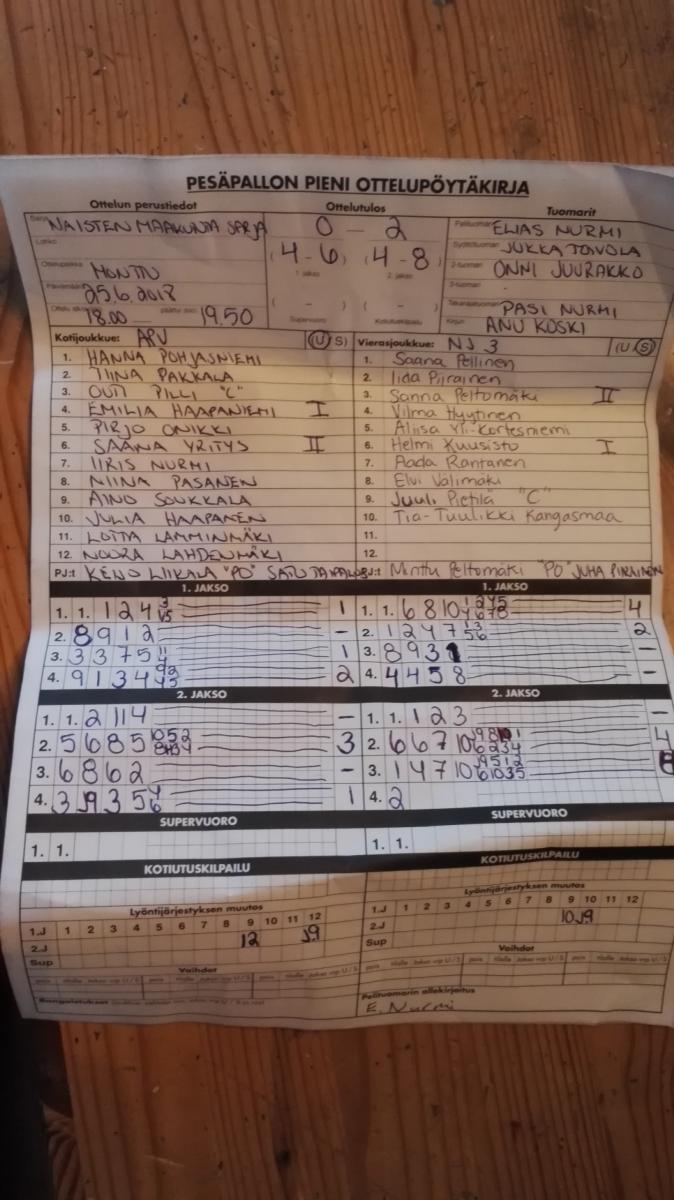 PESÄPALLON PIENI OTTELUPÖYTÄKIRJA
Ottelun perustiedot Ottelutulos Tuomarit
Sarja NAISTEN MAAKUNTA SARJA 0 - 2 ELIAS NURMI
Lohko (4-6) (4-8) JUKKA TOVOLA
1. jakso 2. jakso
Ottelupaikka MONTTU ONNI JUURAKKO
Päivämäärä 25.6.2018 ( - ) ( - )
18.00 19.50 Supervuoro Kotiutuskilpailu PASI NURMI
ANU KOSKI
Kotijoukkue: APV (U S) Vierasjoukkue: NJ 3 (U S)
1. HANNA POHJASNIEMI 1. Saana Pellinen
2. TIINA PAKKALA 2. Iida Piirainen
3. OUTI PILLI "C" 3. Sanna Peltomäki II
4. EMILIA HAAPANIEMI I 4. Vilma Hyytinen
5. PIRJO ONIKKI 5. Aliisa Yli-Kortesniemi
6. SAANA YRITYS II 6. Helmi Kuusisto I
7. IIRIS NURMI 7. Aada Rantanen
8. NIINA PASANEN 8. Elvi Välimäki
9. AINO SOUKKALA 9. Juuli Pietilä "C"
10. JULIA HAAPANEN 10. Tia-Tuulikki Kangasmaa
11. LOTTA LAMMINMÄKI 11.
12. NOORA LAHDENMÄKI 12.
PJ:t KENO LIIKALA "PO" SATU PJ:t Minttu Peltomäki "PO" JUHA PIIRAINEN
1. JAKSO 1. JAKSO
1. 1. 1 2 4 1 1. 1. 6 8 10 4
2. 8 9 1 2 - 2. 1 2 4 7 2
3. 3 3 7 5 1 3. 8 9 3 1 -
4. 9 1 3 4 2 4. 4 4 5 8 -
2. JAKSO 2. JAKSO
1. 1. 2 11 4 - 1. 1. 1 2 3 -
2. 5 6 8 5 3 2. 6 6 7 10 4
3. 6 8 6 2 - 3. 1 4 7 10
4. 3 J9 3 5 1 4. 2
SUPERVUORO SUPERVUORO
1. 1. 1. 1.
KOTIUTUSKILPAILU KOTIUTUSKILPAILU
Lyöntijärjestyksen muutos Lyöntijärjestyksen muutos
1.J 1 2 3 4 5 6 7 8 9 10 11 12 1.J 1 2 3 4 5 6 7 8 9 10 11 12
2.J 12 J9 2.J 10 J9
Sup Sup
Vaihdot Vaihdot
Rangaistukset Pelituomarin allekirjoitus
E. Nurmi